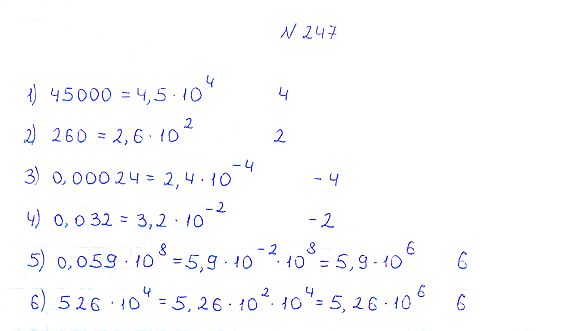 N 247
1) 45000 = 4,5 · 10⁴ 4
2) 260 = 2,6 · 10² 2
3) 0,00024 = 2,4 · 10⁻⁴ -4
4) 0,032 = 3,2 · 10⁻² -2
5) 0,059 · 10⁸ = 5,9 · 10⁻² · 10⁸ = 5,9 · 10⁶ 6
6) 526 · 10⁴ = 5,26 · 10² · 10⁴ = 5,26 · 10⁶ 6